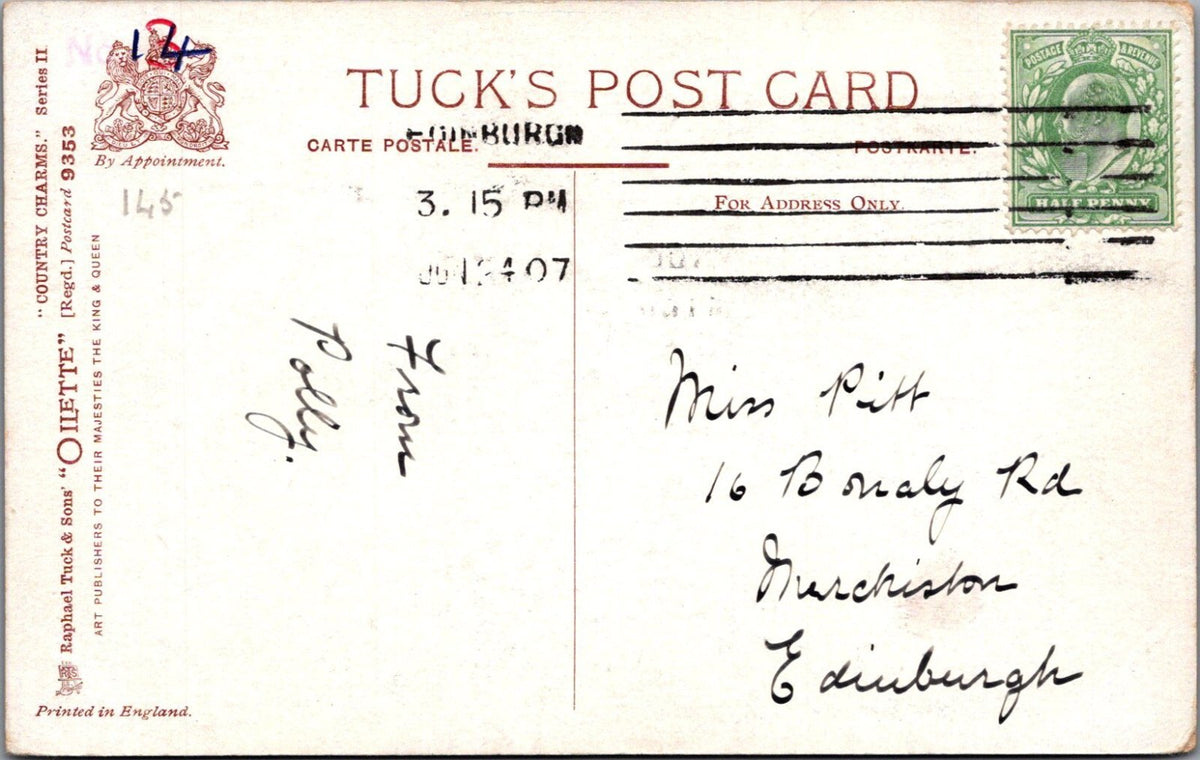 No
14
By Appointment.
145
"COUNTRY CHARMS." Series II
Raphael Tuck & Sons' "OILETTE" [Regd.] Postcard 9353
ART PUBLISHERS TO THEIR MAJESTIES THE KING & QUEEN
Printed in England.
TUCK'S POST CARD
CARTE POSTALE.
POSTKARTE.
FOR ADDRESS ONLY.
EDINBURGH
3. 15 PM
JUN 24 07
POSTAGE & REVENUE
HALF PENNY
From
Polly.
Miss Pitt
16 Bonaly Rd
Merchiston
Edinburgh